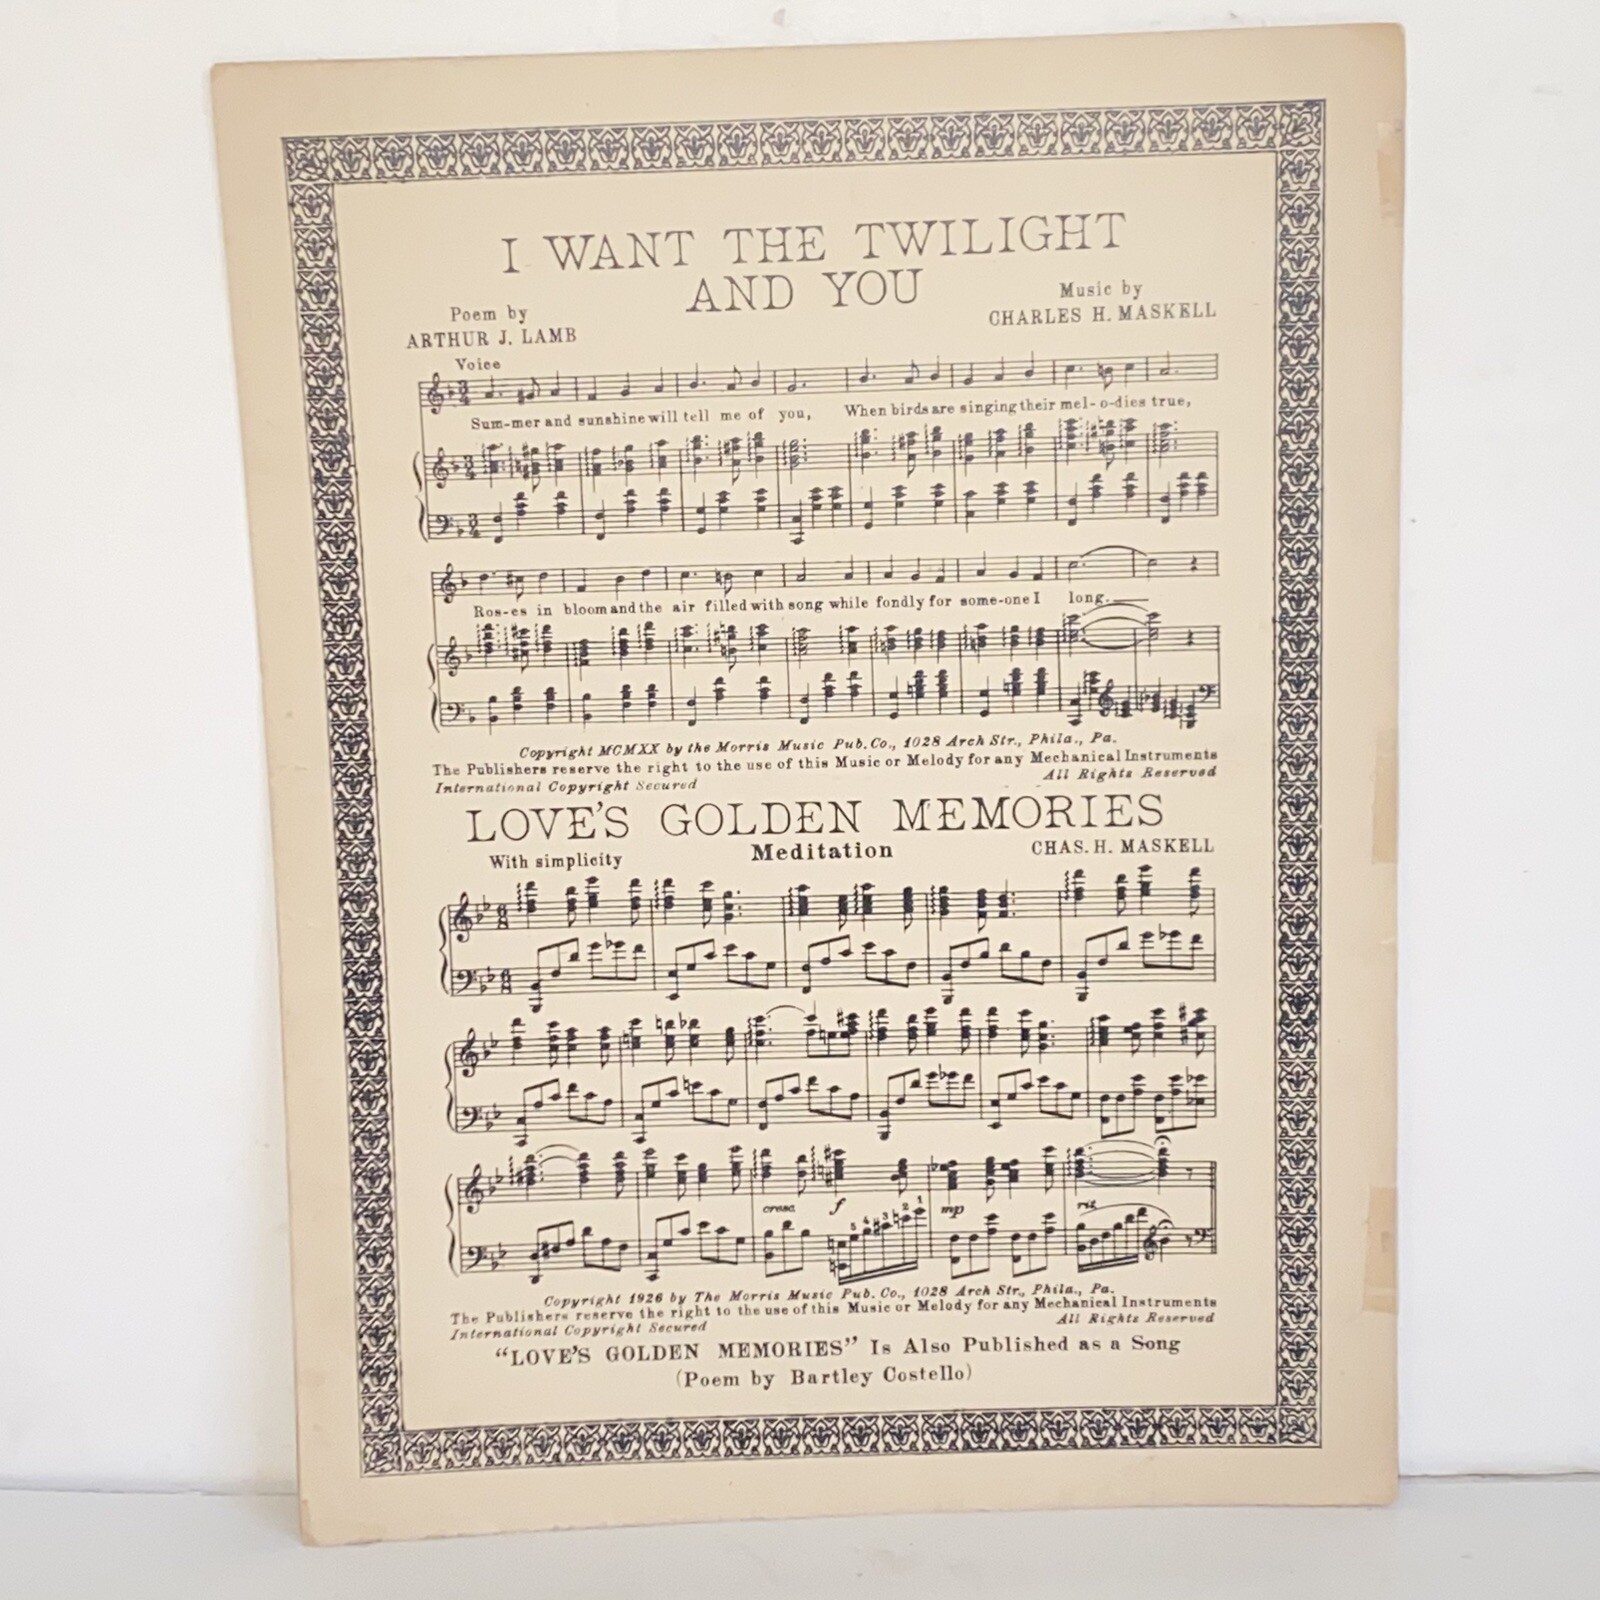 I WANT THE TWILIGHT
AND YOU
Poem by
ARTHUR J. LAMB
Music by
CHARLES H. MASKELL
Voice
Sum-mer and sunshine will tell me of you, When birds are singing their mel-o-dies true,
Ros-es in bloom and the air filled with song while fondly for some-one I long.
Copyright MCMXX by the Morris Music Pub. Co., 1028 Arch Str., Phila., Pa.
The Publishers reserve the right to the use of this Music or Melody for any Mechanical Instruments
International Copyright Secured All Rights Reserved
LOVE'S GOLDEN MEMORIES
With simplicity Meditation CHAS. H. MASKELL
cresc. f 5 4 3 2 1 mp rit.
Copyright 1926 by The Morris Music Pub. Co., 1028 Arch Str., Phila., Pa.
The Publishers reserve the right to the use of this Music or Melody for any Mechanical Instruments
International Copyright Secured All Rights Reserved
"LOVE'S GOLDEN MEMORIES" Is Also Published as a Song
(Poem by Bartley Costello)